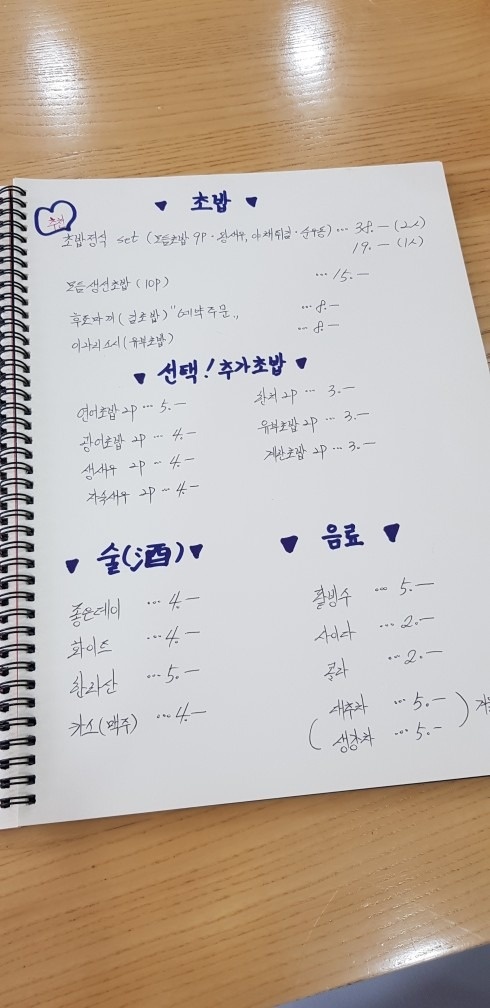 ▼ 초밥 ▼
추천
초밥정식 set (모듬초밥 9P · 왕새우, 야채튀김 · 순우동) ··· 38.- (2人)
19.- (1人)
모듬생선초밥 (10P) ··· 15.-
후토마끼 (김초밥) "예약주문" ··· 8.-
이나리스시 (유부초밥) ··· 8.-
▼ 선택! 추가초밥 ▼
연어초밥 2P ··· 5.-
광어초밥 2P ··· 4.-
생새우 2P ··· 4.-
자숙새우 2P ··· 4.-
한치 2P ··· 3.-
유부초밥 2P ··· 3.-
계란초밥 2P ··· 3.-
▼ 술(酒) ▼
좋은데이 ··· 4.-
화이트 ··· 4.-
한라산 ··· 5.-
카스(맥주) ··· 4.-
▼ 음료 ▼
팥빙수 ··· 5.-
사이다 ··· 2.-
콜라 ··· 2.-
대추차 ··· 5.-
생강차 ··· 5.-